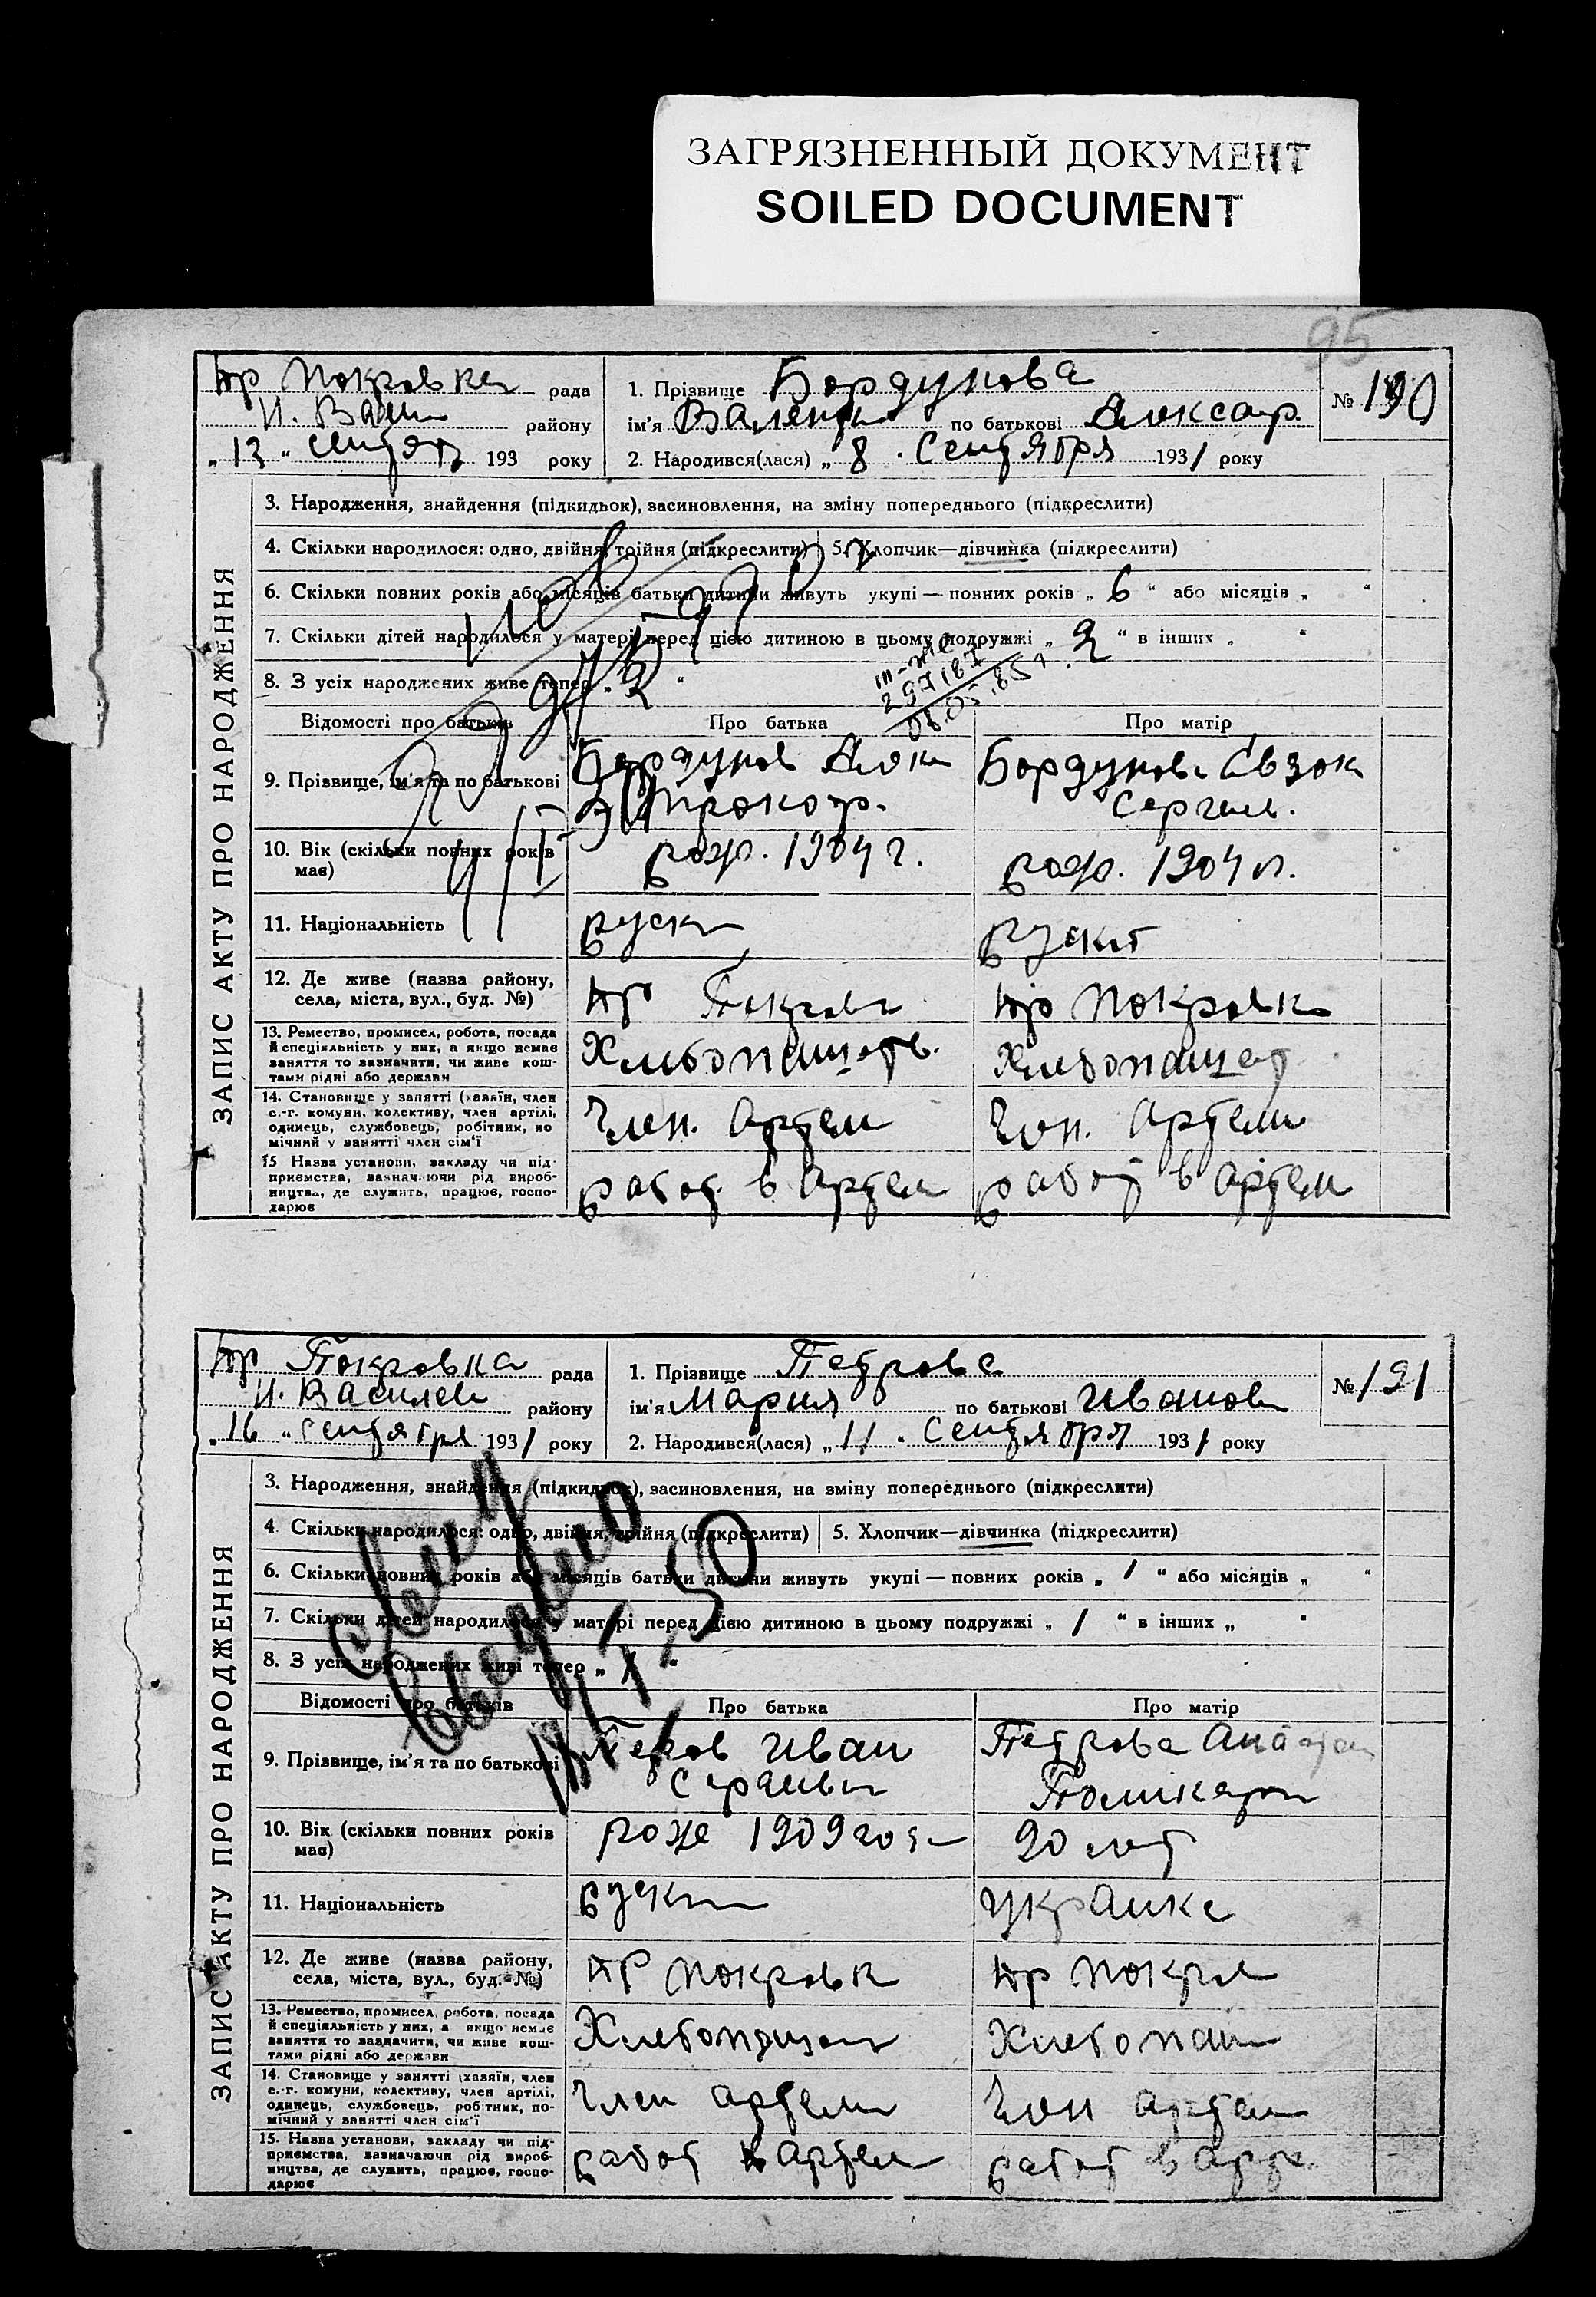 ЗАГРЯЗНЕННЫЙ ДОКУМЕНТ
SOILED DOCUMENT
95
Нр Покровка рада
И. Васи району
„13„ сентяб 193 року
1. Прізвище Бордунова
ім'я Валенти по батькові Алексар.
2. Народився(лася) „8. Сентября 1931 року
№ 190
ЗАПИС АКТУ ПРО НАРОДЖЕННЯ
3. Народження, знайдення (підкидьок), засиновлення, на зміну попереднього (підкреслити)
4. Скільки народилося: одно, двійня, трійня (підкреслити) 5. Хлопчик—дівчинка (підкреслити)
6. Скільки повних років або місяців батьки дитини живуть укупі — повних років „ 6 “ або місяців „ “
7. Скільки дітей народилося у матері перед цією дитиною в цьому подружжі „ 2 “ в інших „ “
8. З усіх народжених живе тепер „ 2 “
Відомості про батьків Про батька Про матір
9. Прізвище, ім'я та по батькові
Бордунов Алек
Прокоф.
Бордунова
Сергеев.
10. Вік (скільки повних років
має)
рож. 1904 г.
рож. 1904 г.
11. Національність
руски
руски
12. Де живе (назва району,
села, міста, вул., буд. №)
Нр Покровк
Нр Покровка
13. Ремество, промисел, робота, посада
й спеціяльність у них, а якщо немає
заняття то зазначити, чи живе кош-
тами рідні або держави
Хлебопашеств.
Хлебопашест
14. Становище у занятті (хазяїн, член
с.-г. комуни, колективу, член артілі,
одинець, службовець, робітник, по
мічний у занятті член сім'ї
Член. Артели
Член. Артели
15 Назва установи, закладу чи під-
приємства, зазначаючи рід вироб-
ництва, де служить, працює, госпо-
дарює
работ. в Артели
работ в Артели
Нр Покровка рада
И. Василев району
„16„ Сентября 1931 року
1. Прізвище Петрова
ім'я Мария по батькові Иванов
2. Народився(лася) „11. Сентября 1931 року
№ 191
ЗАПИС АКТУ ПРО НАРОДЖЕННЯ
3. Народження, знайдення (підкидьок), засиновлення, на зміну попереднього (підкреслити)
4. Скільки народилося: одно, двійня, трійня (підкреслити) 5. Хлопчик—дівчинка (підкреслити)
6. Скільки повних років або місяців батьки дитини живуть укупі — повних років „ 1 “ або місяців „ “
7. Скільки дітей народилося у матері перед цією дитиною в цьому подружжі „ 1 “ в інших „ “
8. З усіх народжених живі тепер „ 1 “
Відомості про батьків Про батька Про матір
9. Прізвище, ім'я та по батькові
Петров Иван
Петрова
10. Вік (скільки повних років
має)
роже 1909 год
20 лет
11. Національність
руски
украинка
12. Де живе (назва району,
села, міста, вул., буд. №)
Нр Покровк
Нр Покров
13. Ремество, промисел, робота, посада
й спеціяльність у них, а якщо немає
заняття то зазначити, чи живе кош-
тами рідні або держави
Хлебопашест
Хлебопаш
14. Становище у занятті (хазяїн, член
с.-г. комуни, колективу, член артілі,
одинець, службовець, робітник, по-
мічний у занятті член сім'ї
Член артели
Член артели
15. Назва установи, закладу чи під-
приємства, зазначаючи рід вироб-
ництва, де служить, працює, госпо-
дарює
работ в Артели
работ в Арте